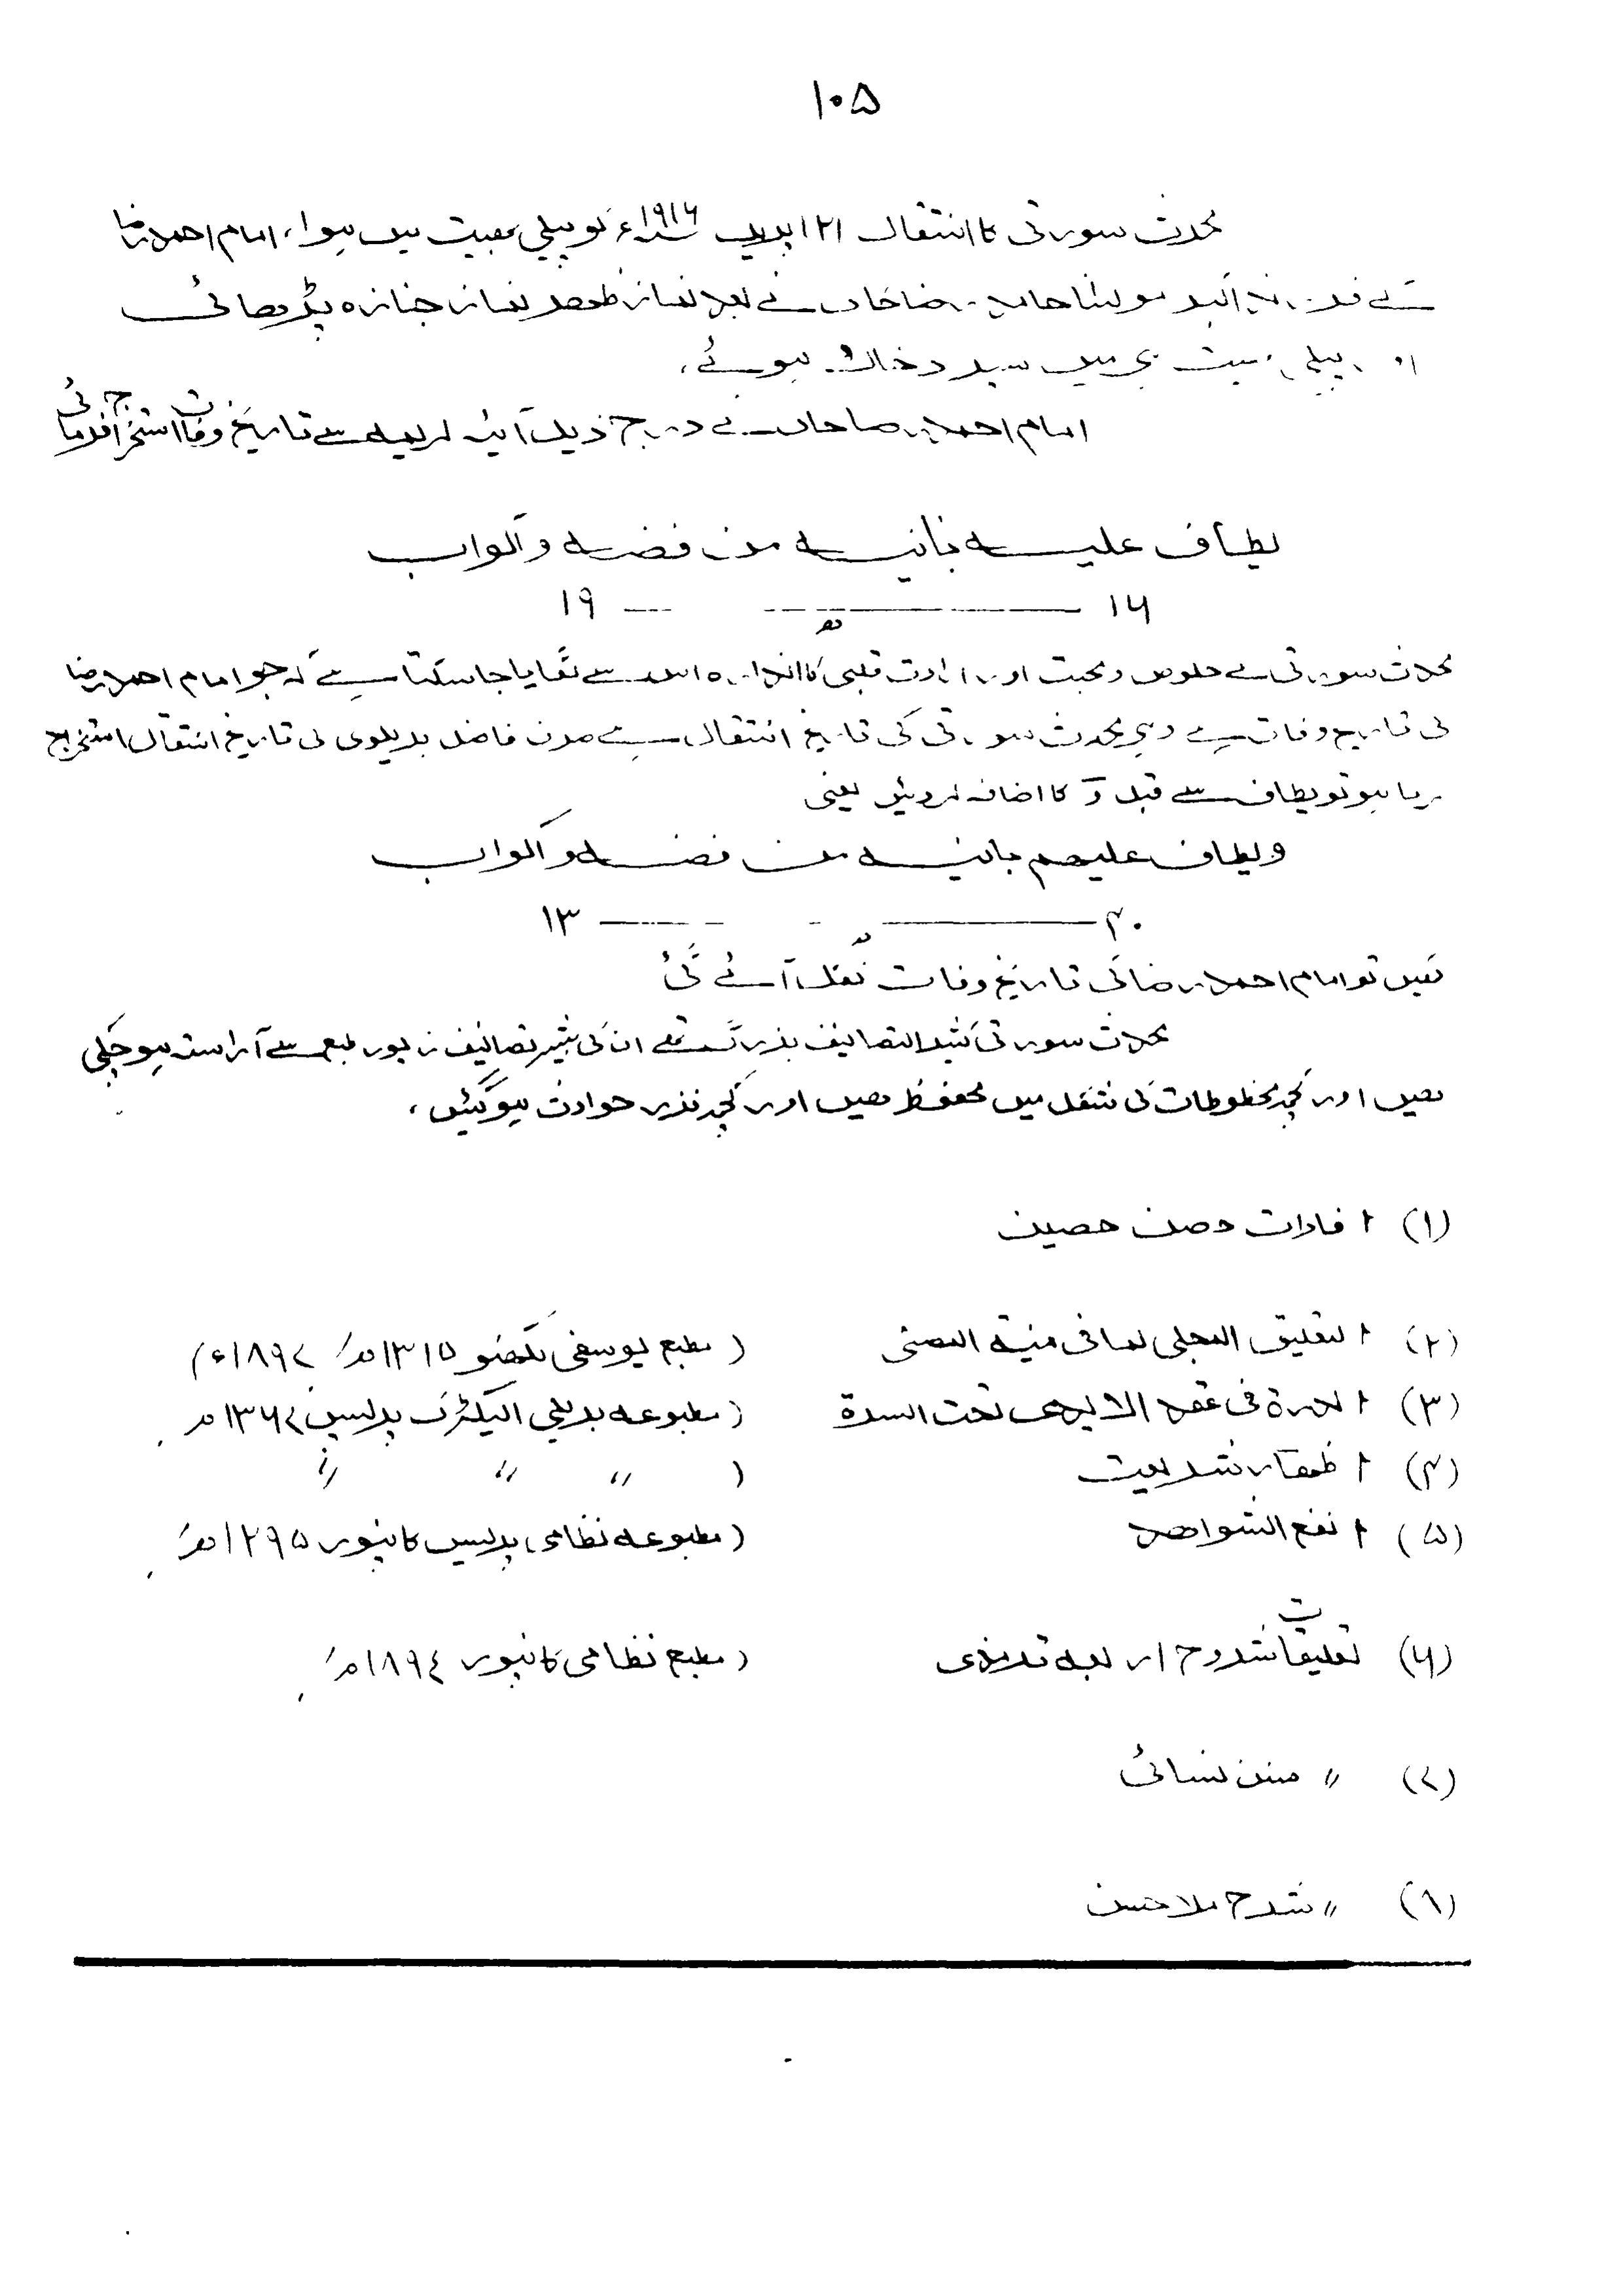 ۱۰۵
محدث سورتی کا انتقال ۱۲ اپریل ۱۹۱۶ء کو پیلی بھیت میں ہوا، امام احمد رضا
کے فرزند اکبر مولانا حامد رضا خاں نے بعد نماز ظہر نماز جنازہ پڑھائی
اور پیلی بھیت ہی میں سپرد خاک ہوئے،
امام احمد رضا خاں نے درج ذیل آیت کریمہ سے تاریخ وفات استخراج فرمائی
يطاف عليهم بانية من فضة واكواب
۱۶ ــــــــــــ ۱۹
محدث سورتی سے خلوص و محبت اور ارادت قلبی کا اندازہ اس سے لگایا جا سکتا ہے کہ جو امام احمد رضا
کی تاریخ وفات ہے وہی محدث سورتی کی تاریخ انتقال ہے صرف فاضل بریلوی کی تاریخ انتقال استخراج
کرنا ہو تو یطاف سے قبل و کا اضافہ کر دیں یعنی
ويطاف عليهم بانية من فضة واكواب
۴۰ ــــــــــــ ۱۳
کہیں تو امام احمد رضا کی تاریخ وفات نکل آئے گی
محدث سورتی کثیر التصانیف بزرگ تھے ان کی بیشتر تصانیف زیور طبع سے آراستہ ہو چکی
ہیں اور کچھ مخطوطات کی شکل میں محفوظ ہیں اور کچھ نذر حوادث ہو گئیں،
(۱) افادات حصن حصین
(۲) التعلیق المجلی لما فی منیۃ المصلی (مطبع یوسفی لکھنو ۱۳۱۵ھ/ ۱۸۹۷ء)
(۳) الدرة فی عقد الایدی تحت السرة (مطبوعہ بریلی الیکٹرک پریس ۱۳۶۷ھ
(۴) اظہار شریعت ( " " "
(۵) انفع الشواهد (مطبوعہ نظامی پریس کانپور ۱۲۹۵ھ/
(۶) تعلیقات شروح اربعہ ترمذی (مطبع نظامی کانپور ۱۸۹۴ھ/
(۷) " سنن نسائی
(۸) " شرح ملا حسن